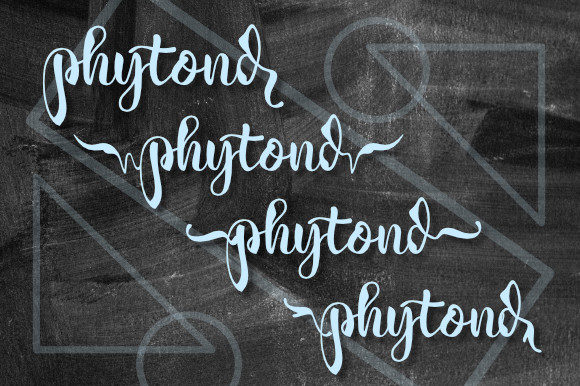 phytond
phytond
phytond
phytond